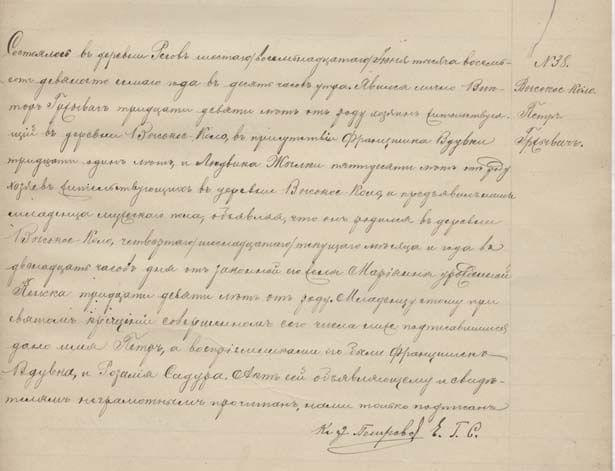 Состоялось въ деревни Рсовъ шестаго/восемнадцатаго/Iюня тысяча восемь-
сотъ девяносто седьмаго года въ десять часовъ утра. Явился лично Вин-
торъ Грživачъ тридцати девяти лѣтъ отъ роду хозяинъ жительствую-
щій въ деревни Высокое-Коло, въ присутствіи Францишка Вдувки
тридцати одинъ лѣтъ, и Людвика пятидесяти лѣтъ отъ роду
хозяевъ жительствующихъ въ деревни Высокое-Коло, и предъявилъ намъ
младенца мужескаго пола, объявляя, что онъ родился въ деревни
Высокое Коло, четвертаго/шестнадцатаго/текущаго мѣсяца и года въ
двѣнадцать часовъ дня отъ законной его жены Маріанна урожденной
тридцати девяти лѣтъ отъ роду. Младенцу этому при
святомъ крещеніи совершенномъ сего числа ниже подписавшимся
дано имя Петръ, а воспріемниками его были Францишекъ
Вдувка, и Розалія Садура. Актъ сей объявляющему и свидѣ-
телямъ неграмотнымъ прочитанъ, нами только подписанъ
Е. Г. С.
N 38.
Высокое Коло.
Петръ